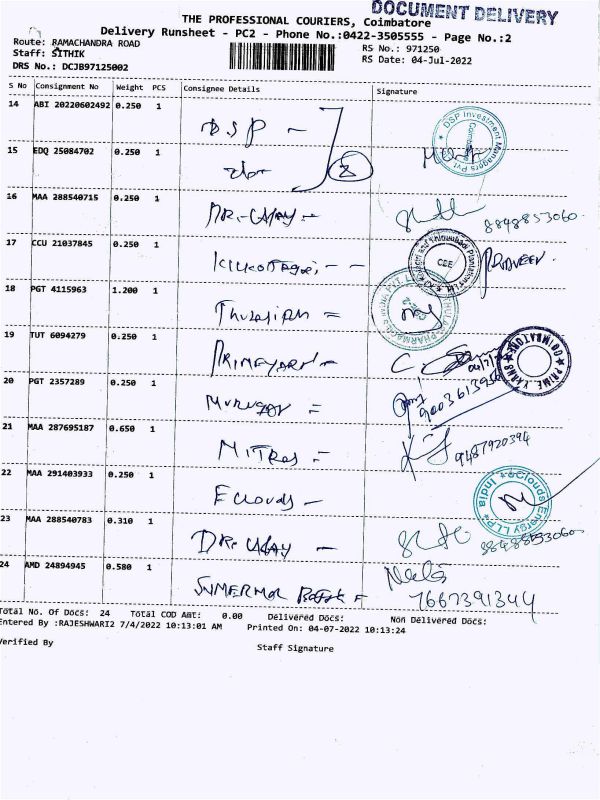 DOCUMENT DELIVERY
THE PROFESSIONAL COURIERS, Coimbatore
Delivery Runsheet - PC2 - Phone No.:0422-3505555 - Page No.:2
Route: RAMACHANDRA ROAD
RS No.: 971250
Staff: SITHIK
RS Date: 04-Jul-2022
DRS No.: DCJB97125002
S No Consignment No Weight PCS Consignee Details Signature
14 ABI 20220602492 0.250 1 DSP -
DSP Investment Managers Pvt
15 EDQ 25084702 0.250 1
16 MAA 288540715 0.250 1 DR. UDAY - 8848853060
17 CCU 21037845 0.250 1 CEE PRAVEEN
18 PGT 4115963 1.200 1
19 TUT 6094279 0.250 1 COIMBATORE PRIME YARNS
20 PGT 2357289 0.250 1 MURUGAN = 9003613956
21 MAA 287695187 0.650 1 MITRAS = 9487920394
22 MAA 291403933 0.250 1 E Clouds -
eClouds Energy LLP India
23 MAA 288540783 0.310 1 DR. UDAY - 8848853060
24 AMD 24894945 0.580 1 7667391344
Total No. Of Docs: 24 Total COD Amt: 0.00 Delivered Docs: Non Delivered Docs:
Entered By :RAJESHWARI2 7/4/2022 10:13:01 AM Printed On: 04-07-2022 10:13:24
Verified By Staff Signature